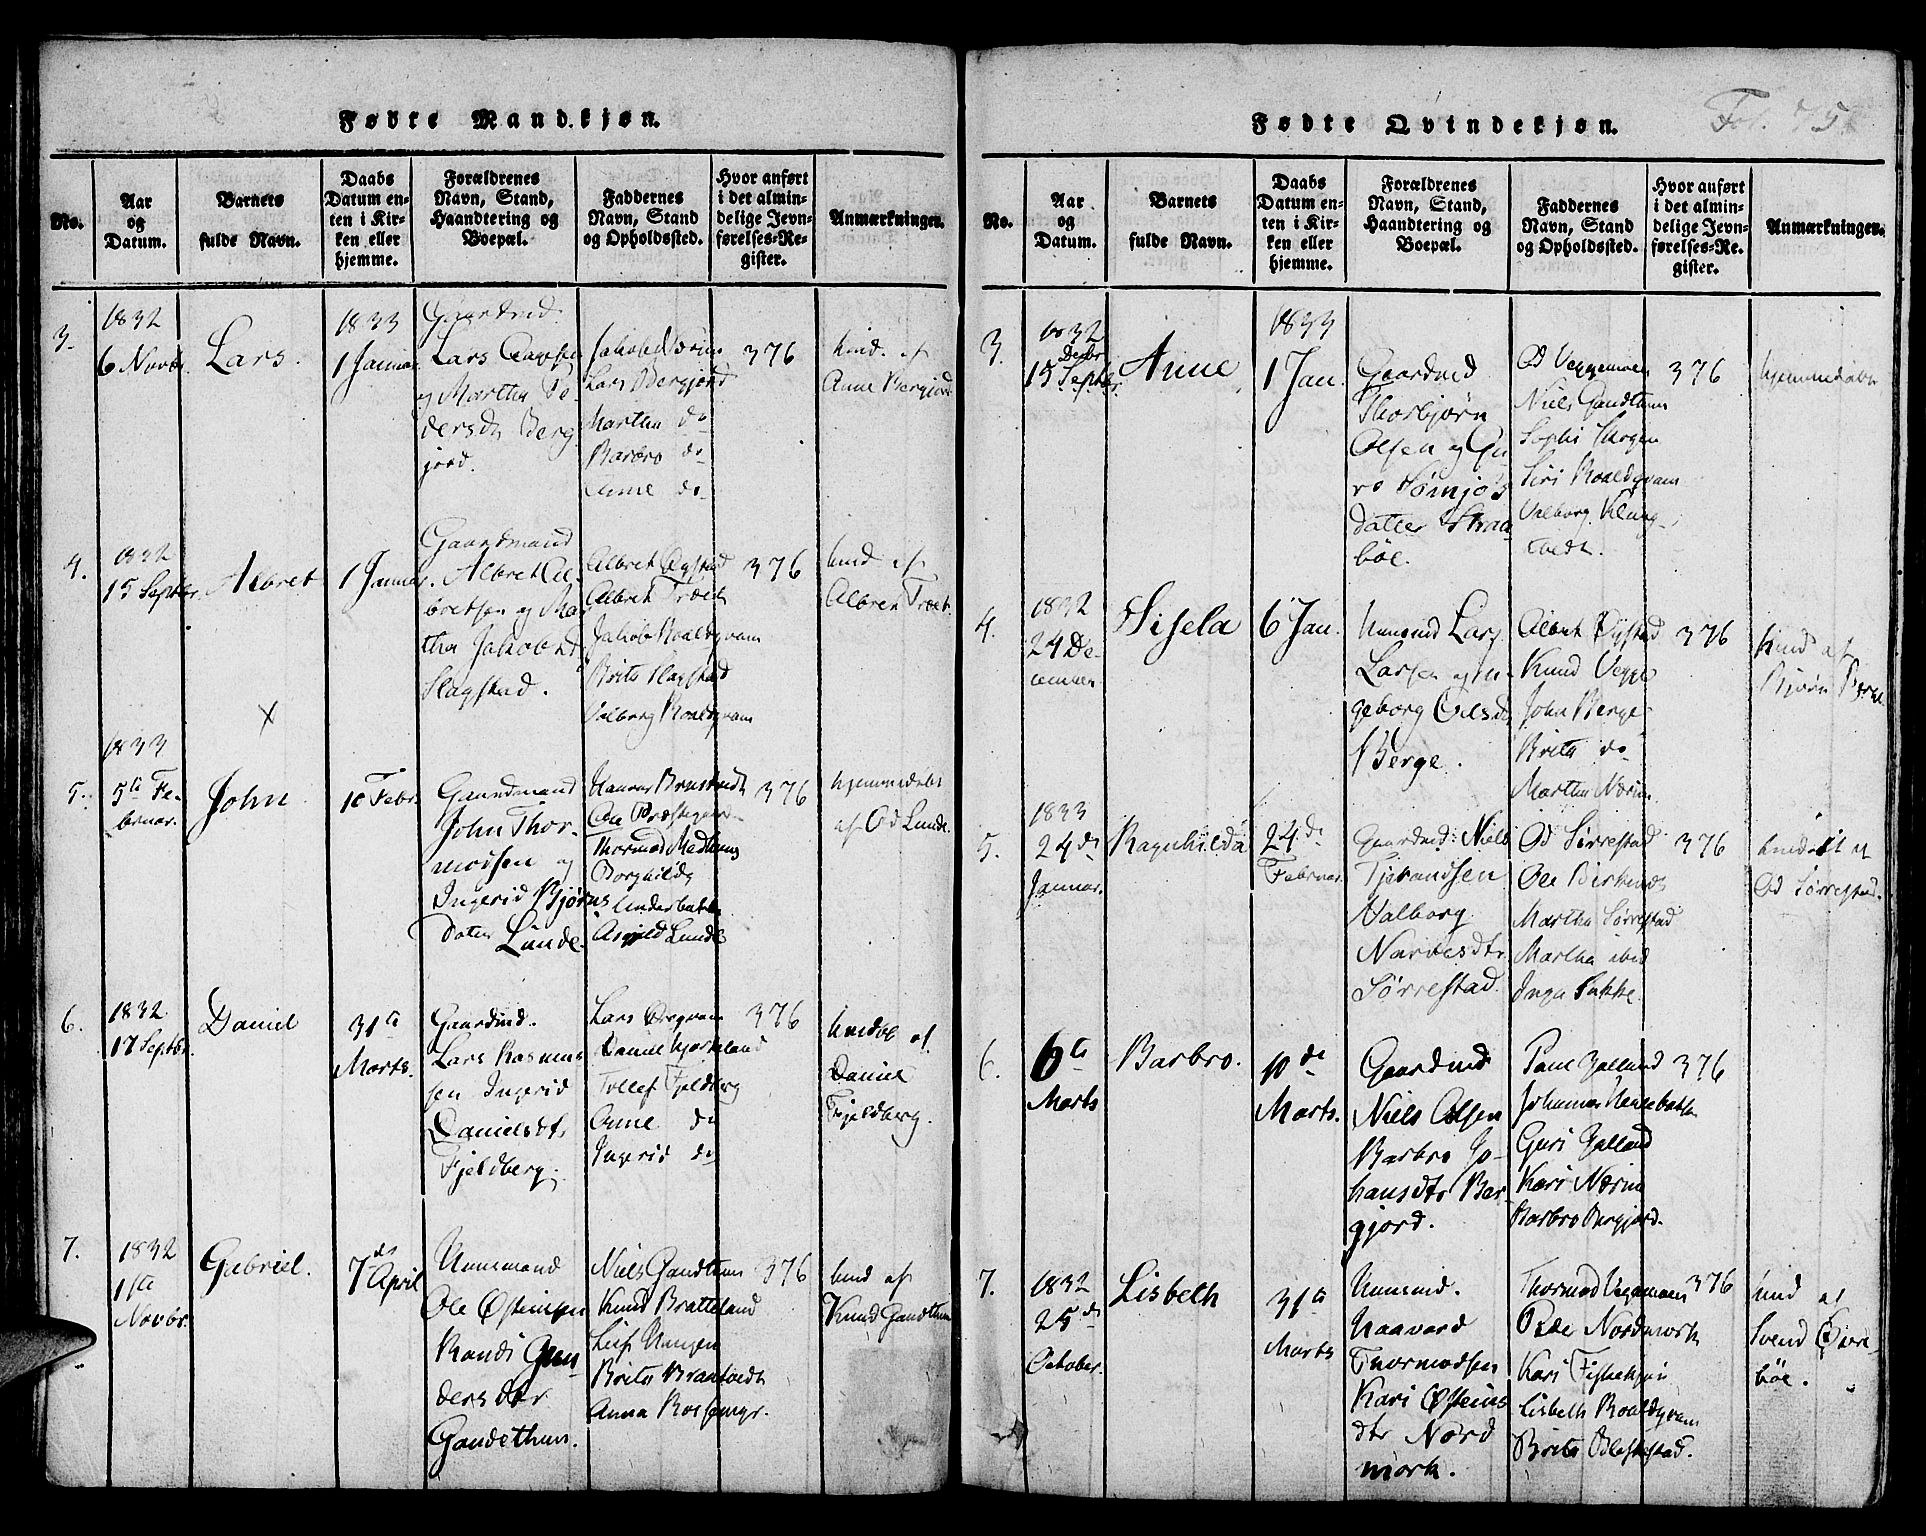 Fødte Mandkjøn.
No.
Aar
og
Datum.
Barnets
fulde Navn.
Daabs
Datum en-
ten i Kir-
ken eller
hjemme.
Forældrenes
Navn, Stand,
Haandtering og
Boepæl.
Faddernes
Navn, Stand
og Opholdssted.
Hvor anført
i det almin-
delige Jevn-
førelses-Re-
gister.
Anmærkninger.
3.
1832
6 Novbr.
Lars.
1833
1 Januar.
Gaardmd.
Lars
og Martha Pe-
dersdr Berg
jord.
Jakob Nærim
Lars Bergjord
Martha do
Barbro do
Anne do
376
hind. af
Anne Bergjord
4.
1832
15 Septbr.
Albret
1 Januar.
Gaardmand
Albret Al-
bretsen og Mar
tha Jakobsd
Slagstad.
Albret Øystad
Albret Træet
Jakob Roaldqvam
Brita Slagstad
Valborg Roaldqvam
376
hind af
Albret Træet.
X
5.
1833
5te Fe-
bruar.
John
10 Febr.
Gaardmand
John Thor-
modsen og
Ingerid Bjørns
Datter Lunde.
Ole Præstegaard
Thormod Medhuug
Borghilda
Underbakke
Lunde
376
hjemmedøbt
af Od Lunde.
6.
1832
17 Septbr.
Daniel
31te
Marts.
Gaardmd.
Lars Rasmus
sen Ingerid
Danielsdtr
Fjeldberg.
Lars
Daniel Hjorteland
Tollef Fjeldberg
Anne do
Ingerid do
376
hmdøb af
Daniel
Fjeldberg.
7.
1832
1ste
Novbr.
Gabriel.
7de
April
Unnemand
Ole Østensen
Randi Gun
dersdtr
Gandethun.
Niels Gandthun
Knud Bratteland
Brita Brantvedt
Anna
376
hind af
Knud Gandthun
Fødte Qvindekjøn.
Fol. 75.
No.
Aar
og
Datum.
Barnets
fulde Navn.
Daabs
Datum en-
ten i Kir-
ken eller
hjemme.
Forældrenes
Navn, Stand,
Haandtering og
Boepæl.
Faddernes
Navn, Stand
og Opholdssted.
Hvor anført
i det almin-
delige Jevn-
førelses-Re-
gister.
Anmærkninger.
3.
1832
Decbr
15 Septbr.
Anne
1833
1 Jan.
Gaardmd
Thorbjørn
Olsen og Gu
ro
datter Straa
bøe.
Od Veggemoen
Niels Gandthun
Siri Roaldqvam
Valborg Kling-
tvedt.
376
hjemmedøbt
4.
1832
24 De-
cember
Sisela
6 Jan.
Unnmd Lars
Larsen og In-
geborg Olsd
Berge.
Albret Øystad
Knud Vegge
John Berge
Brita do
Martha Nærim
376
hind af
Bjørn Berge
5.
1833
24de
Januar.
Ragnhilda
24de
Februar.
Gaardmd: Niels
Tjerandsen
Valborg
Narvesdtr
Sørrestad.
Od Sørrestad
Ole Birkenæs
Martha Sørrestad
Martha ibid
Inga Bakke.
376
hmdøbt af
Od Sørrestad.
6.
6te
Marts
Barbro.
10de
Marts.
Gaardmd
Niels Olsen
Barbro Jo-
hansdtr Ber
gjord.
Paul Jalland
Johannes Herabakke
Guri Jalland
Kari Nærim
Barbro Bergjord.
376
7.
1832
25de
October.
Lisbeth
31te
Marts
Unnmd.
Haavard
Thormodsen
Kari Østeins
dtr Nord
mork.
Thormod Vegamoen
Peder Nordmork
Kari
Lisbeth Roaldqvam
Brita Bleskestad.
376
hind af
Svend Øvre-
bøe.